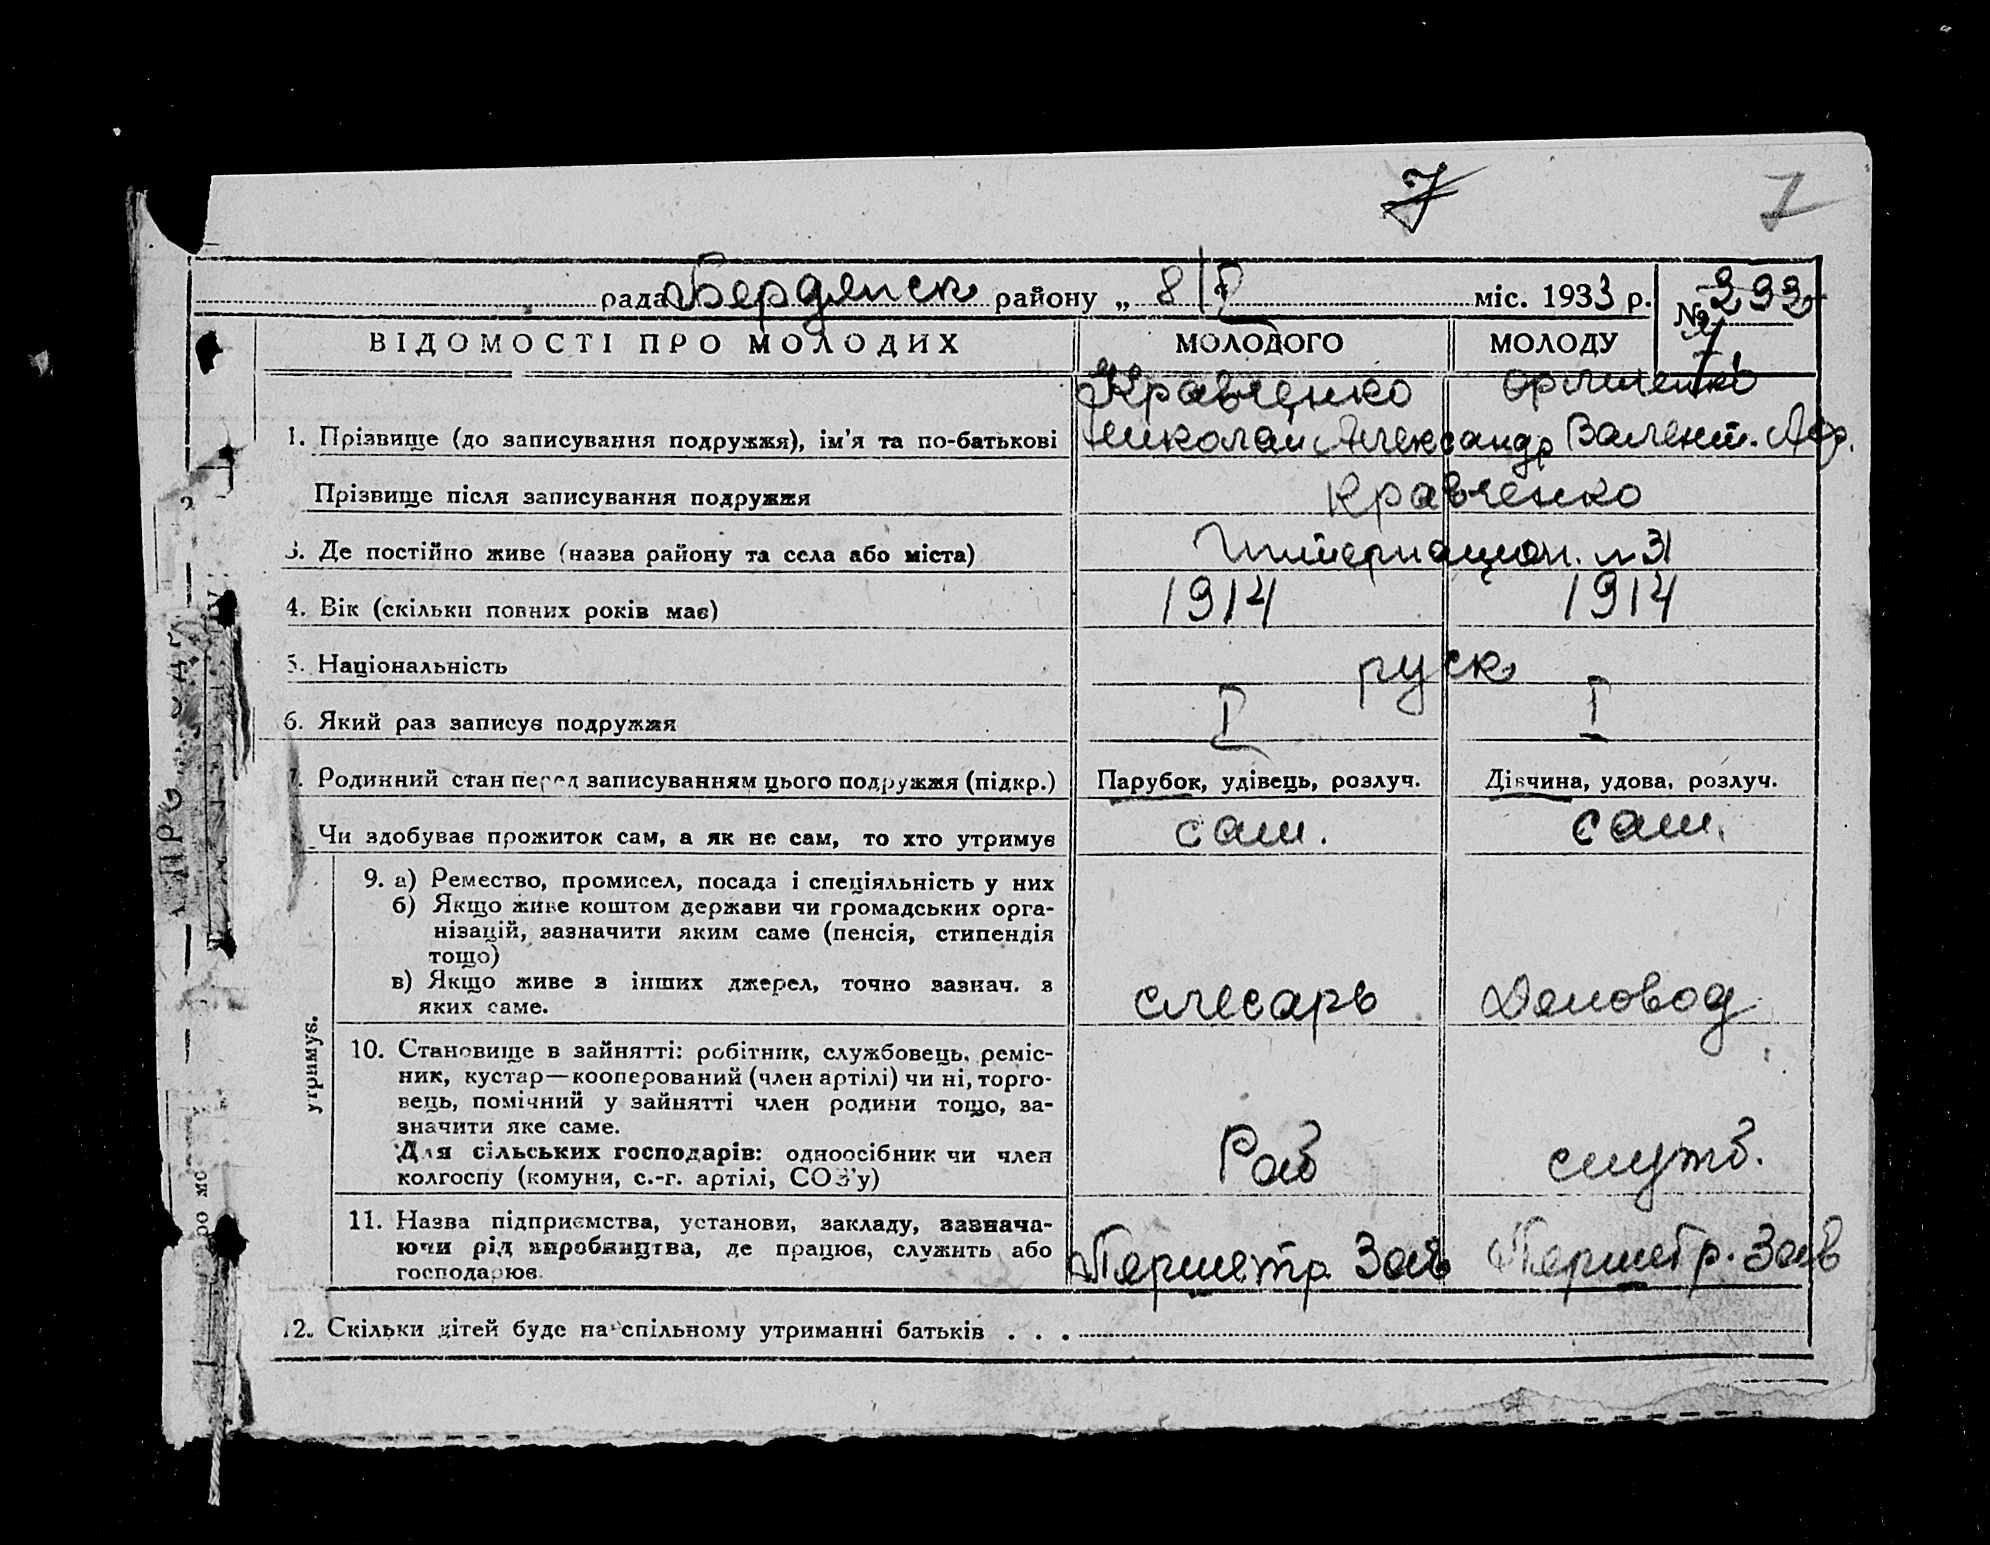 7 7
рада Бердянск району „ 8/I міс. 1933 р. № 
ВІДОМОСТІ ПРО МОЛОДИХ МОЛОДОГО МОЛОДУ
Кравченко
1. Прізвище (до записування подружжя), ім'я та по-батькові Николай Александр Валент.
Прізвище після записування подружжя Кравченко
3. Де постійно живе (назва району та села або міста) Интернацион. №31
4. Вік (скільки повних років має) 1914 1914
5. Національність руск
6. Який раз записує подружжя I I
7. Родинний стан перед записуванням цього подружжя (підкр.) Парубок, удівець, розлуч. Дівчина, удова, розлуч.
Чи здобуває прожиток сам, а як не сам, то хто утримує сам. сам.
утримує.
9. а) Ремество, промисел, посада і спеціяльність у них
б) Якщо живе коштом держави чи громадських орга-
нізацій, зазначити яким саме (пенсія, стипендія
тощо)
в) Якщо живе з інших джерел, точно зазнач. з
яких саме. слесарь Деловод
10. Становище в зайнятті: робітник, службовець, реміс-
ник, кустар—кооперований (член артілі) чи ні, торго-
вець, помічний у зайнятті член родини тощо, за-
значити яке саме.
Для сільських господарів: одноосібник чи член
колгоспу (комуни, с.-г. артілі, СОЗ'у) Раб служб.
11. Назва підприємства, установи, закладу, зазнача-
ючи рід виробництва, де працює, служить або
господарює Перметр. Зав Перметр. Зав
12. Скільки дітей буде на спільному утриманні батьків . . .